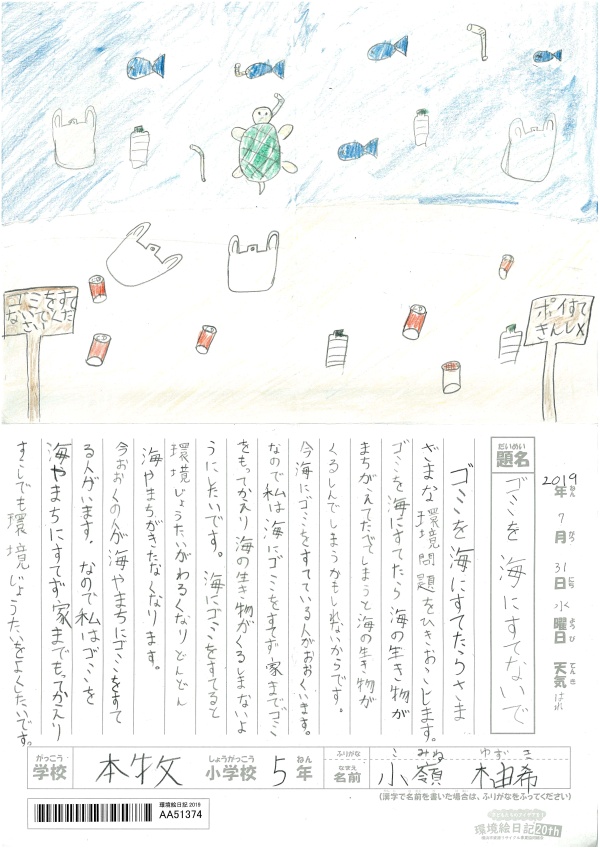 ゴミをすて
ないでくだ
さい
ポイすて
きんしX
2019年 7月 31日 水曜日 天気 はれ
ねん
がつ
にち
ようび
てんき
だいめい
題名
ゴミを 海にすてないで
ゴミを海にすてたらさま
ざまな環境問題をひきおこします。
ゴミを海にすてたら海の生き物が
まちがえてたべてしまうと海の生き物が
くるしんでしまうかもしれないからです。
今海にゴミをすてている人がおおくいます。
なので私は海にゴミをすてず家までゴミ
をもってかえり海の生き物がくるしまないよ
うにしたいです。海にゴミをすてると
環境じょうたいがわるくなりどんどん
海やまちがきたなくなります。
今おおくの人が海やまちにゴミをすて
る人がいます。なので私はゴミを
海やまちにすてず家までもってかえり
すこしでも環境じょうたいをよくしたいです。
がっこう しょうがっこう ねん ふりがな こみね ゆずき
学校 本牧 小学校 5年 なまえ 名前 小嶺 柚希
(漢字で名前を書いた場合は、ふりがなをふってください)
環境絵日記 2019
AA51374
環境絵日記 20th